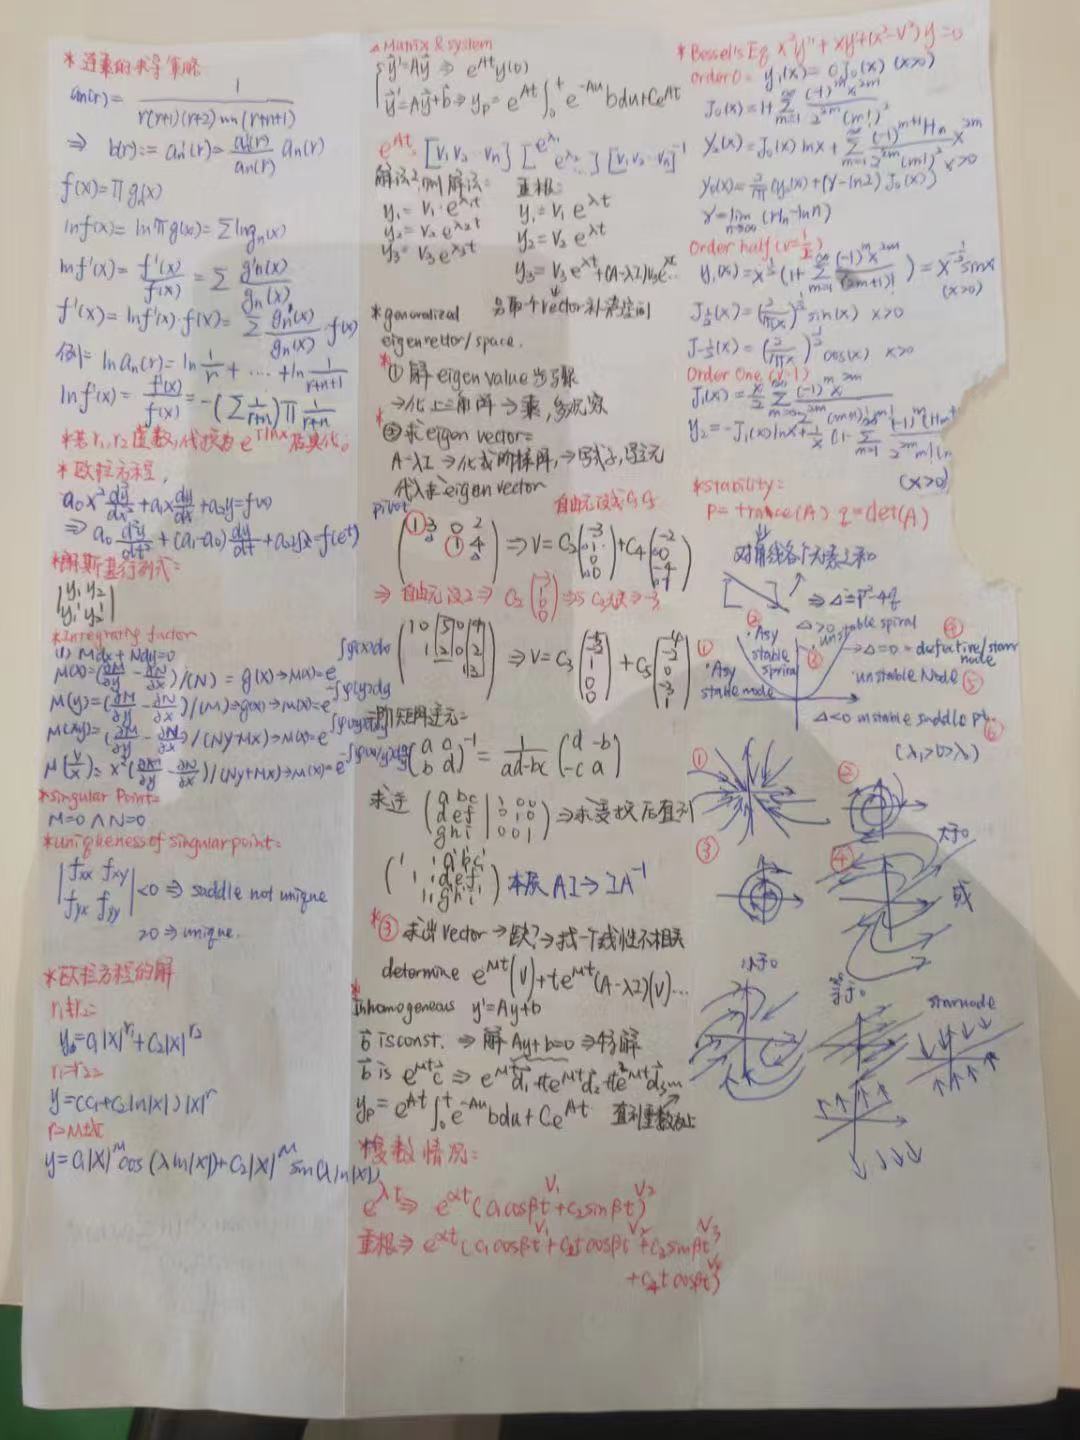 *连乘的求导策略
an(r) = 1 / r(r+1)(r+2)...(r+n+1)
⇒ b(r) := an'(r) = an'(r)/an(r) an(r)
f(x) = Π g(x)
lnf(x) = lnΠg(x) = Σ ln gn(x)
lnf'(x) = f'(x)/f(x) = Σ g'n(x)/gn(x)
f'(x) = lnf'(x)·f(x) = Σ gn'(x)/gn(x) · f(x)
例= ln an(r) = ln 1/r + ... + ln 1/(r+n+1)
lnf'(x) = f'(x)/f(x) = -(Σ 1/(r+n)) Π 1/(r+n)
*若r1,r2虚数,代换为e^(rlnx)
*欧拉方程,
a0x² d²y/dx² + a1x dy/dx + a2y = f(x)
⇒ a0 d²y/dt² + (a1-a0) dy/dt + a2y = f(e^t)
行列式=
|y1 y2|
|y1' y2'|
*Integrating factor
(1) Mdx + Ndy=0
M(x) = (∂M/∂y - ∂N/∂x)/(N) = g(x) → M(x) = e^∫g(x)dx
M(y) = (∂M/∂y - ∂N/∂x)/(M) ⇒ g(x) → M(x) = e^-∫φ(y)dy
M(xy) = (∂M/∂y - ∂N/∂x)/(Ny-Mx) → M(x) = e
M(y/x) = x²(∂M/∂y - ∂N/∂x)/(Ny+Mx) → M(x) = e
*Singular Point=
M=0 ∧ N=0
*uniqueness of singular point=
|fxx fxy|
|fyx fyy| <0 ⇒ saddle not unique
>0 ⇒ unique.
*欧拉方程的解
r1≠r2=
y0 = c1|x|^r1 + c2|x|^r2
r1=r2=
y = (c1+c2ln|x|)|x|^r
y = c1|x|^M cos(λln|x|) + c2|x|^M sin(λln|x|)
△Matrix & system
{ y'=Ay ⇒ e^At y(0)
y'=Ay+b ⇒ yp = e^At ∫0^t e^-Au bdu + Ce^At
e^At = [V1 V2 ... Vn] [e^λ1 e^λ2 ...] [V1 V2 ... Vn]^-1
重根:
y1 = V1·e^λ1t y1 = V1 e^λt
y2 = V2 e^λ2t y2 = V2 e^λt
y3 = V3 e^λ3t y3 = V3 e^λt + (A-λI)V3e^λt...
另取个vector补满空间
*generalized
eigenvector/space.
*①解eigen value
→化上三角阵→乘,
*②求eigen vector=
A-λI →化成阶梯阵,→写式子,
代入求eigen vector
pivot 自由元设成C1 C2
(1 3 0 2
1 4) ⇒ V = C2(-3 1 0 0) + C4(-2 0 -4 1)
⇒自由元设2 ⇒ C2(-3 1 0 0)
(1 0 5 0 4
1 2 0 2
1 3) ⇒ V = C3(-5 -2 1 0 0) + C5(-4 -2 0 -3 1)
二阶矩阵逆元=
(a a
b d)^-1 = 1/(ad-bc) (d -b
-c a)
求逆 (a b c | 1 0 0
d e f | 0 1 0
g h i | 0 0 1) ⇒
(1 a' b' c'
1 d' e' f'
1 g' h' i') 本质 AI ⇒ IA^-1
*③求出vector→缺?→找一个线性不相关
determine e^Mt(V) + te^Mt(A-λI)(V)...
*Inhomogeneous y'=Ay+b
b is const. ⇒ 解 Ay+b=0 ⇒特解
b is e^Mt c ⇒ e^Mt d1 + te^Mt d2 + t²e^Mt d3...
yp = e^At ∫0^t e^-Au bdu + Ce^At 直到重数为止
*复数情况=
e^λt ⇒ e^αt (c1cosβt V1 + c2sinβt V2)
重根⇒ e^αt (c1cosβt V1 + c2tcosβt V2 + c3sinβt V3
+ c4tcosβt V4)
*Bessel's Eq x²y''+xy'+(x²-V²)y=0
Order 0 = y1(x) = J0(x) (x>0)
J0(x) = 1+Σ(m=1,∞) (-1)^m x^2m / 2^2m (m!)²
y2(x) = J0(x)lnx + Σ(m=1,∞) (-1)^(m+1) Hm x^2m / 2^2m (m!)² x>0
y0(x) = 2/π (y2(x) + (γ-ln2)J0(x))
γ = lim(n→∞) (Hn-lnn)
Order half (v=1/2)
y1(x) = x^-1/2 (1+Σ(m=1,∞) (-1)^m x^2m / (2m+1)!) = x^-1/2 sinx
(x>0)
J1/2(x) = (2/πx)^1/2 sin(x) x>0
J-1/2(x) = (2/πx)^1/2 cos(x) x>0
Order One (V=1)
J1(x) = x/2 Σ(m=0,∞) (-1)^m x^2m / 2^2m (m+1)! m!
y2 = -J1(x)lnx + 1/x (1-Σ(m=1,∞) (-1)^m (Hm+
2^2m m!(m
(x>0)
*Stability=
P = trance(A) q = det(A)
对角线各个元素之和
⇒ △=p²-4q
△>0 stable spiral
② Asy stable spiral
③
unst
④
→△=0 = defective/starr node
① Asy stable node
unstable Node ⑤
△<0 unstable saddle pt. ⑥
(λ1>0>λ2)
① ②
③ ④ 大于0
或
小于0
等于0
starnode